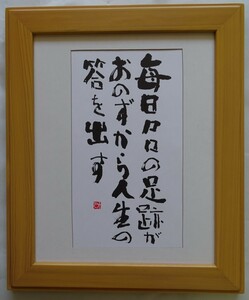 毎日々々の足跡が
おのずから人生の
答を出す